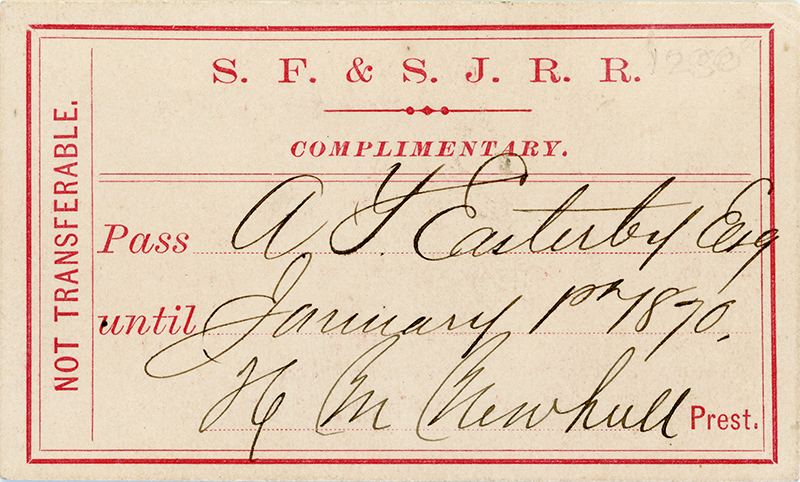 S. F. & S. J. R. R.
COMPLIMENTARY.
NOT TRANSFERABLE.
Pass A Y. Easterby Esq
until January 1st 1870.
H M Newhall Prest.